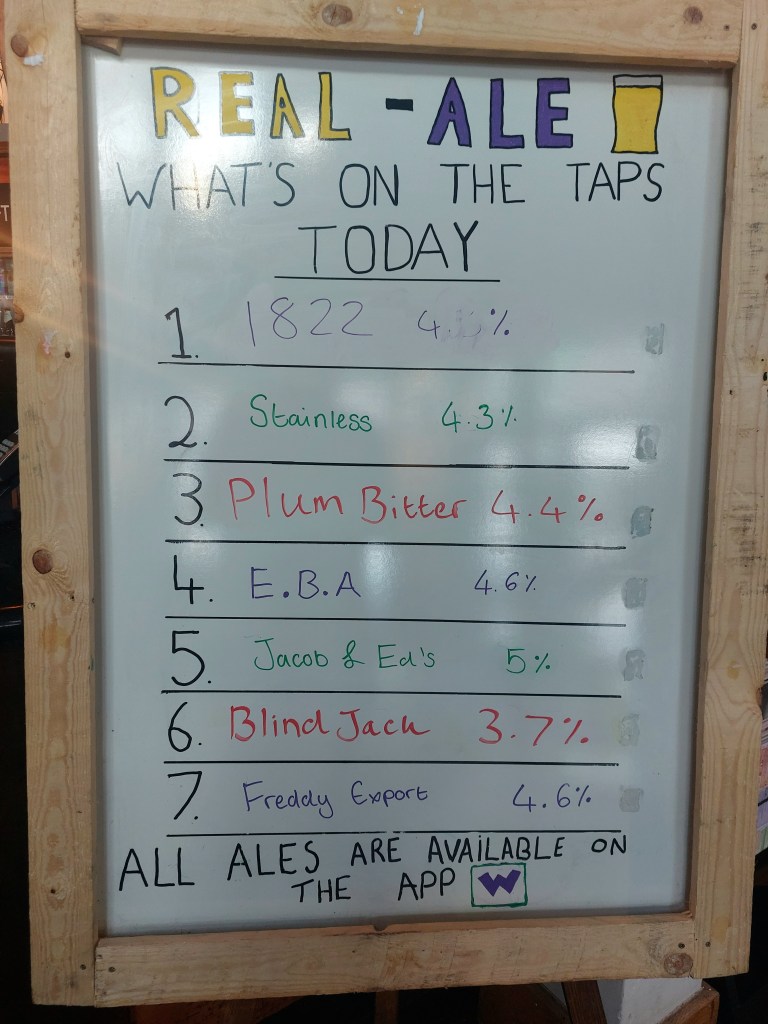 REAL - ALE
WHAT'S ON THE TAPS
TODAY
1. 1822
2. Stainless 4.3%
3. Plum Bitter 4.4%
4. E.B.A 4.6%
5. Jacob & Ed's 5%
6. Blind Jack 3.7%
7. Freddy Export 4.6%
ALL ALES ARE AVAILABLE ON
THE APP W